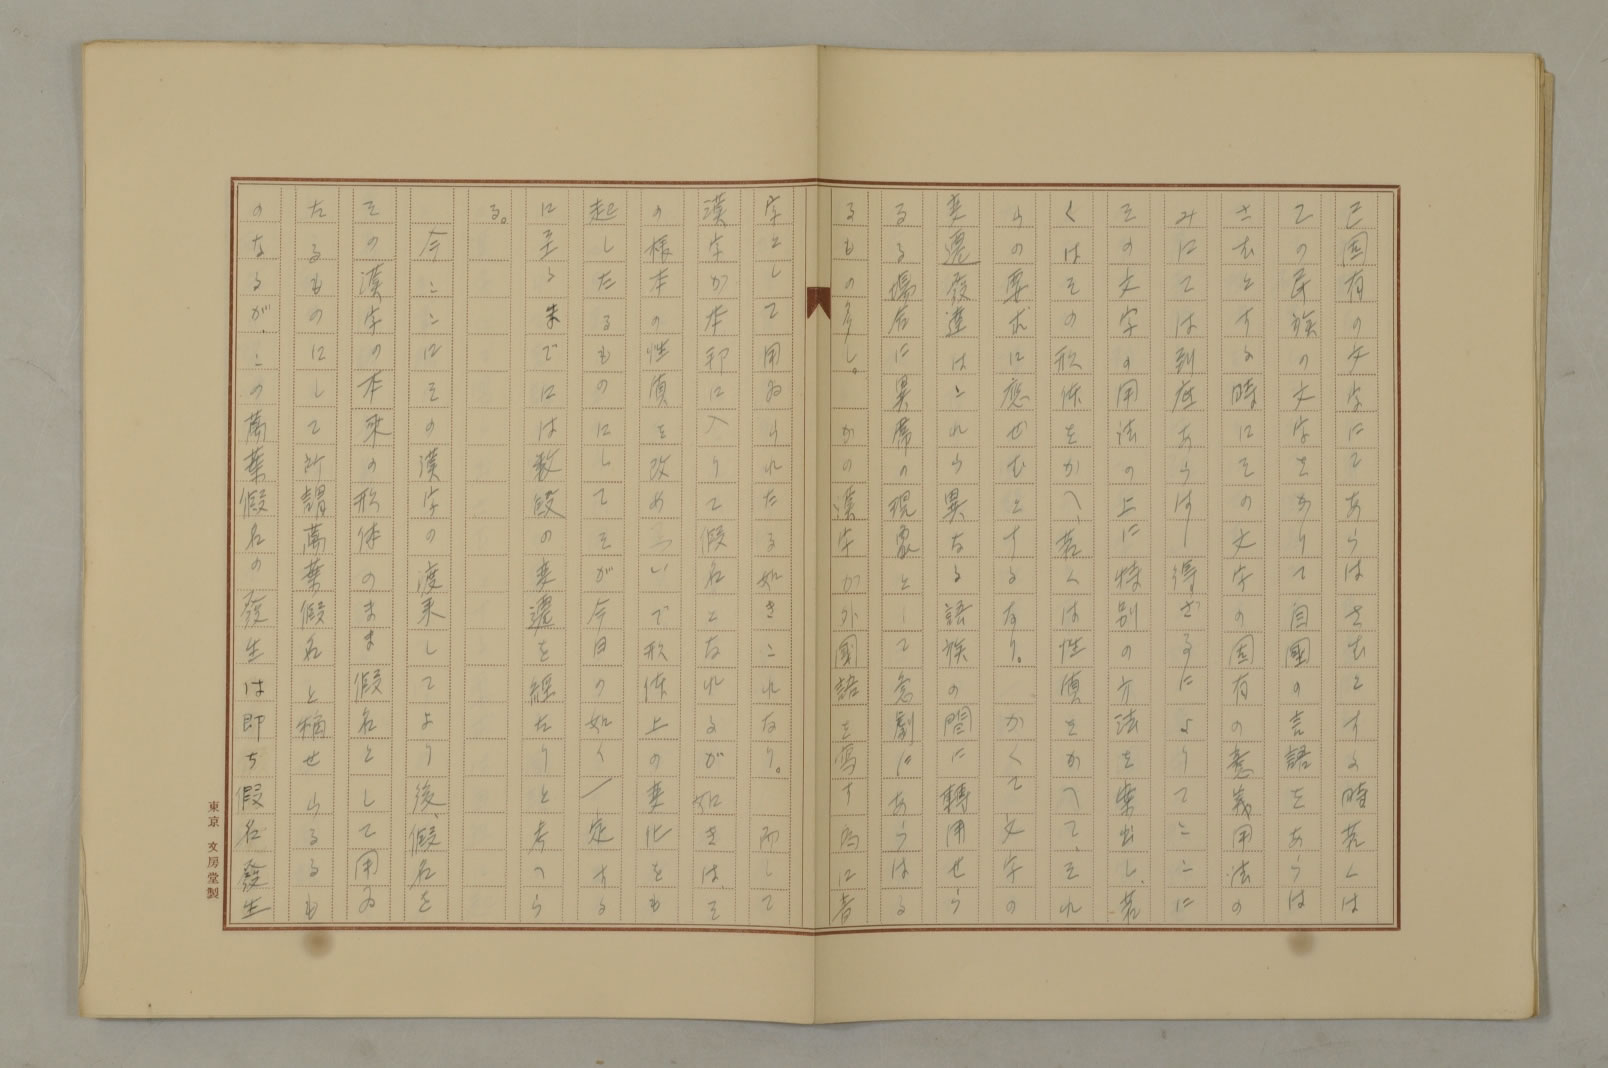 己固有の文字にてあらはさむとする時若くは
他の民族の文字をかりて自國の言語をあらは
さむとする時にその文字の固有の意義用法の
みにては到底あらはし得ざるによりてここに
その文字の用法の上に特別の方法を案出し、若
くはその形体をかへ、若くは性質をかへて、それ
らの要求に應ぜむとするなり。かくて文字の
変遷發達はこれら異なる語族の間に轉用せら
るる場合に異常の現象として急劇にあらはる
るもの多し。かの漢字が外國語を写す為に音
字として用ゐられたる如きこれなり。而して
漢字が本邦に入りて假名となれるが如きは、そ
の様本の性質を改めついで形体上の変化をも
起したるものにしてそが今日の如く一定する
に至るまでには数段の変遷を經たりと考へら
る。
今ここにその漢字の渡来してより後、假名を
その漢字の本来の形体のまま假名として用ゐ
たるものにして所謂萬葉假名と稱せらるるも
のなるが、この萬葉假名の發生は即ち假名發生
東京 文房堂製